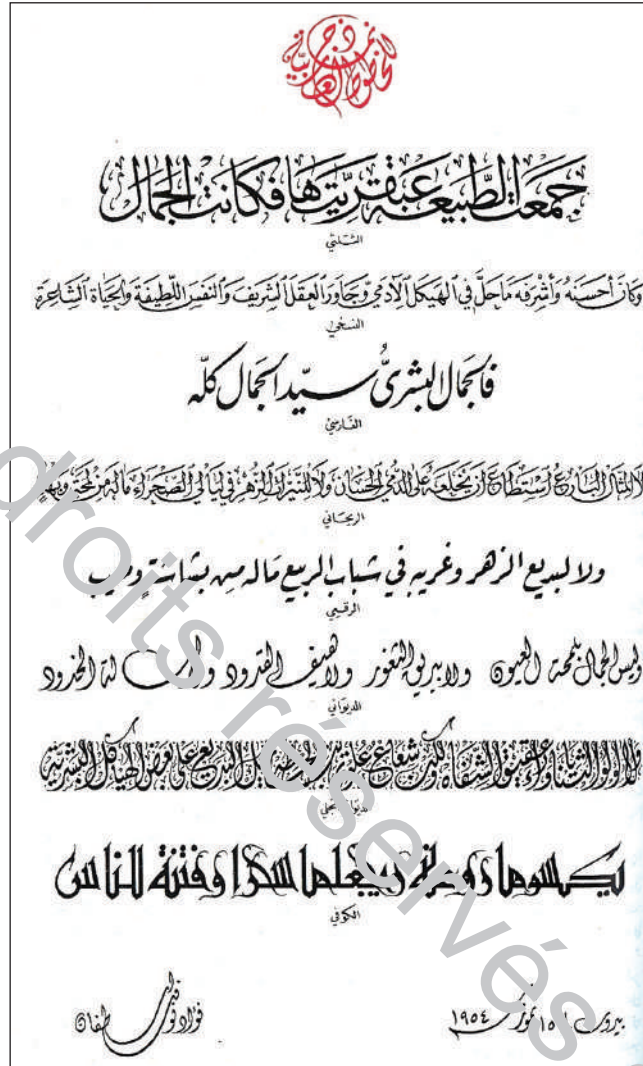 نماذج الخطوط العربية
جمعت الطبيعة عبقريتها فكانت الجمال
الثلثي
وكان أحسنه وأشرفه ما حل في الهيكل الآدمي وجاور العقل الشريف والنفس اللطيفة والحياة الشاعرة
النسخي
فالجمال البشري سيد الجمال كله
الفارسي
لا المثال البارع استطاع أن يخلعه على الدمى الحسان ولا للنيرات الزهر في ليالي الصحراء ما له من لمحة وبهاء
الريحاني
ولا لبديع الزهر وغريبه في شباب الربيع ماله من بشاشة وطيب
الرقعي
وليس الجمال بلمحة العيون ولا ببريق الثغور ولا هيف القدود ولا أسالة الخدود
الديواني
ولا لؤلؤ الثنايا وعقيق الشفاه ولكن شعاع علوي البديع على بعض الهياكل البشرية
يكسوها روعة ويجعلها سحرا وفتنة للناس
الكوفي
بيروت ١٥ تموز ١٩٥٤
فؤاد اسطفان
droits réservés